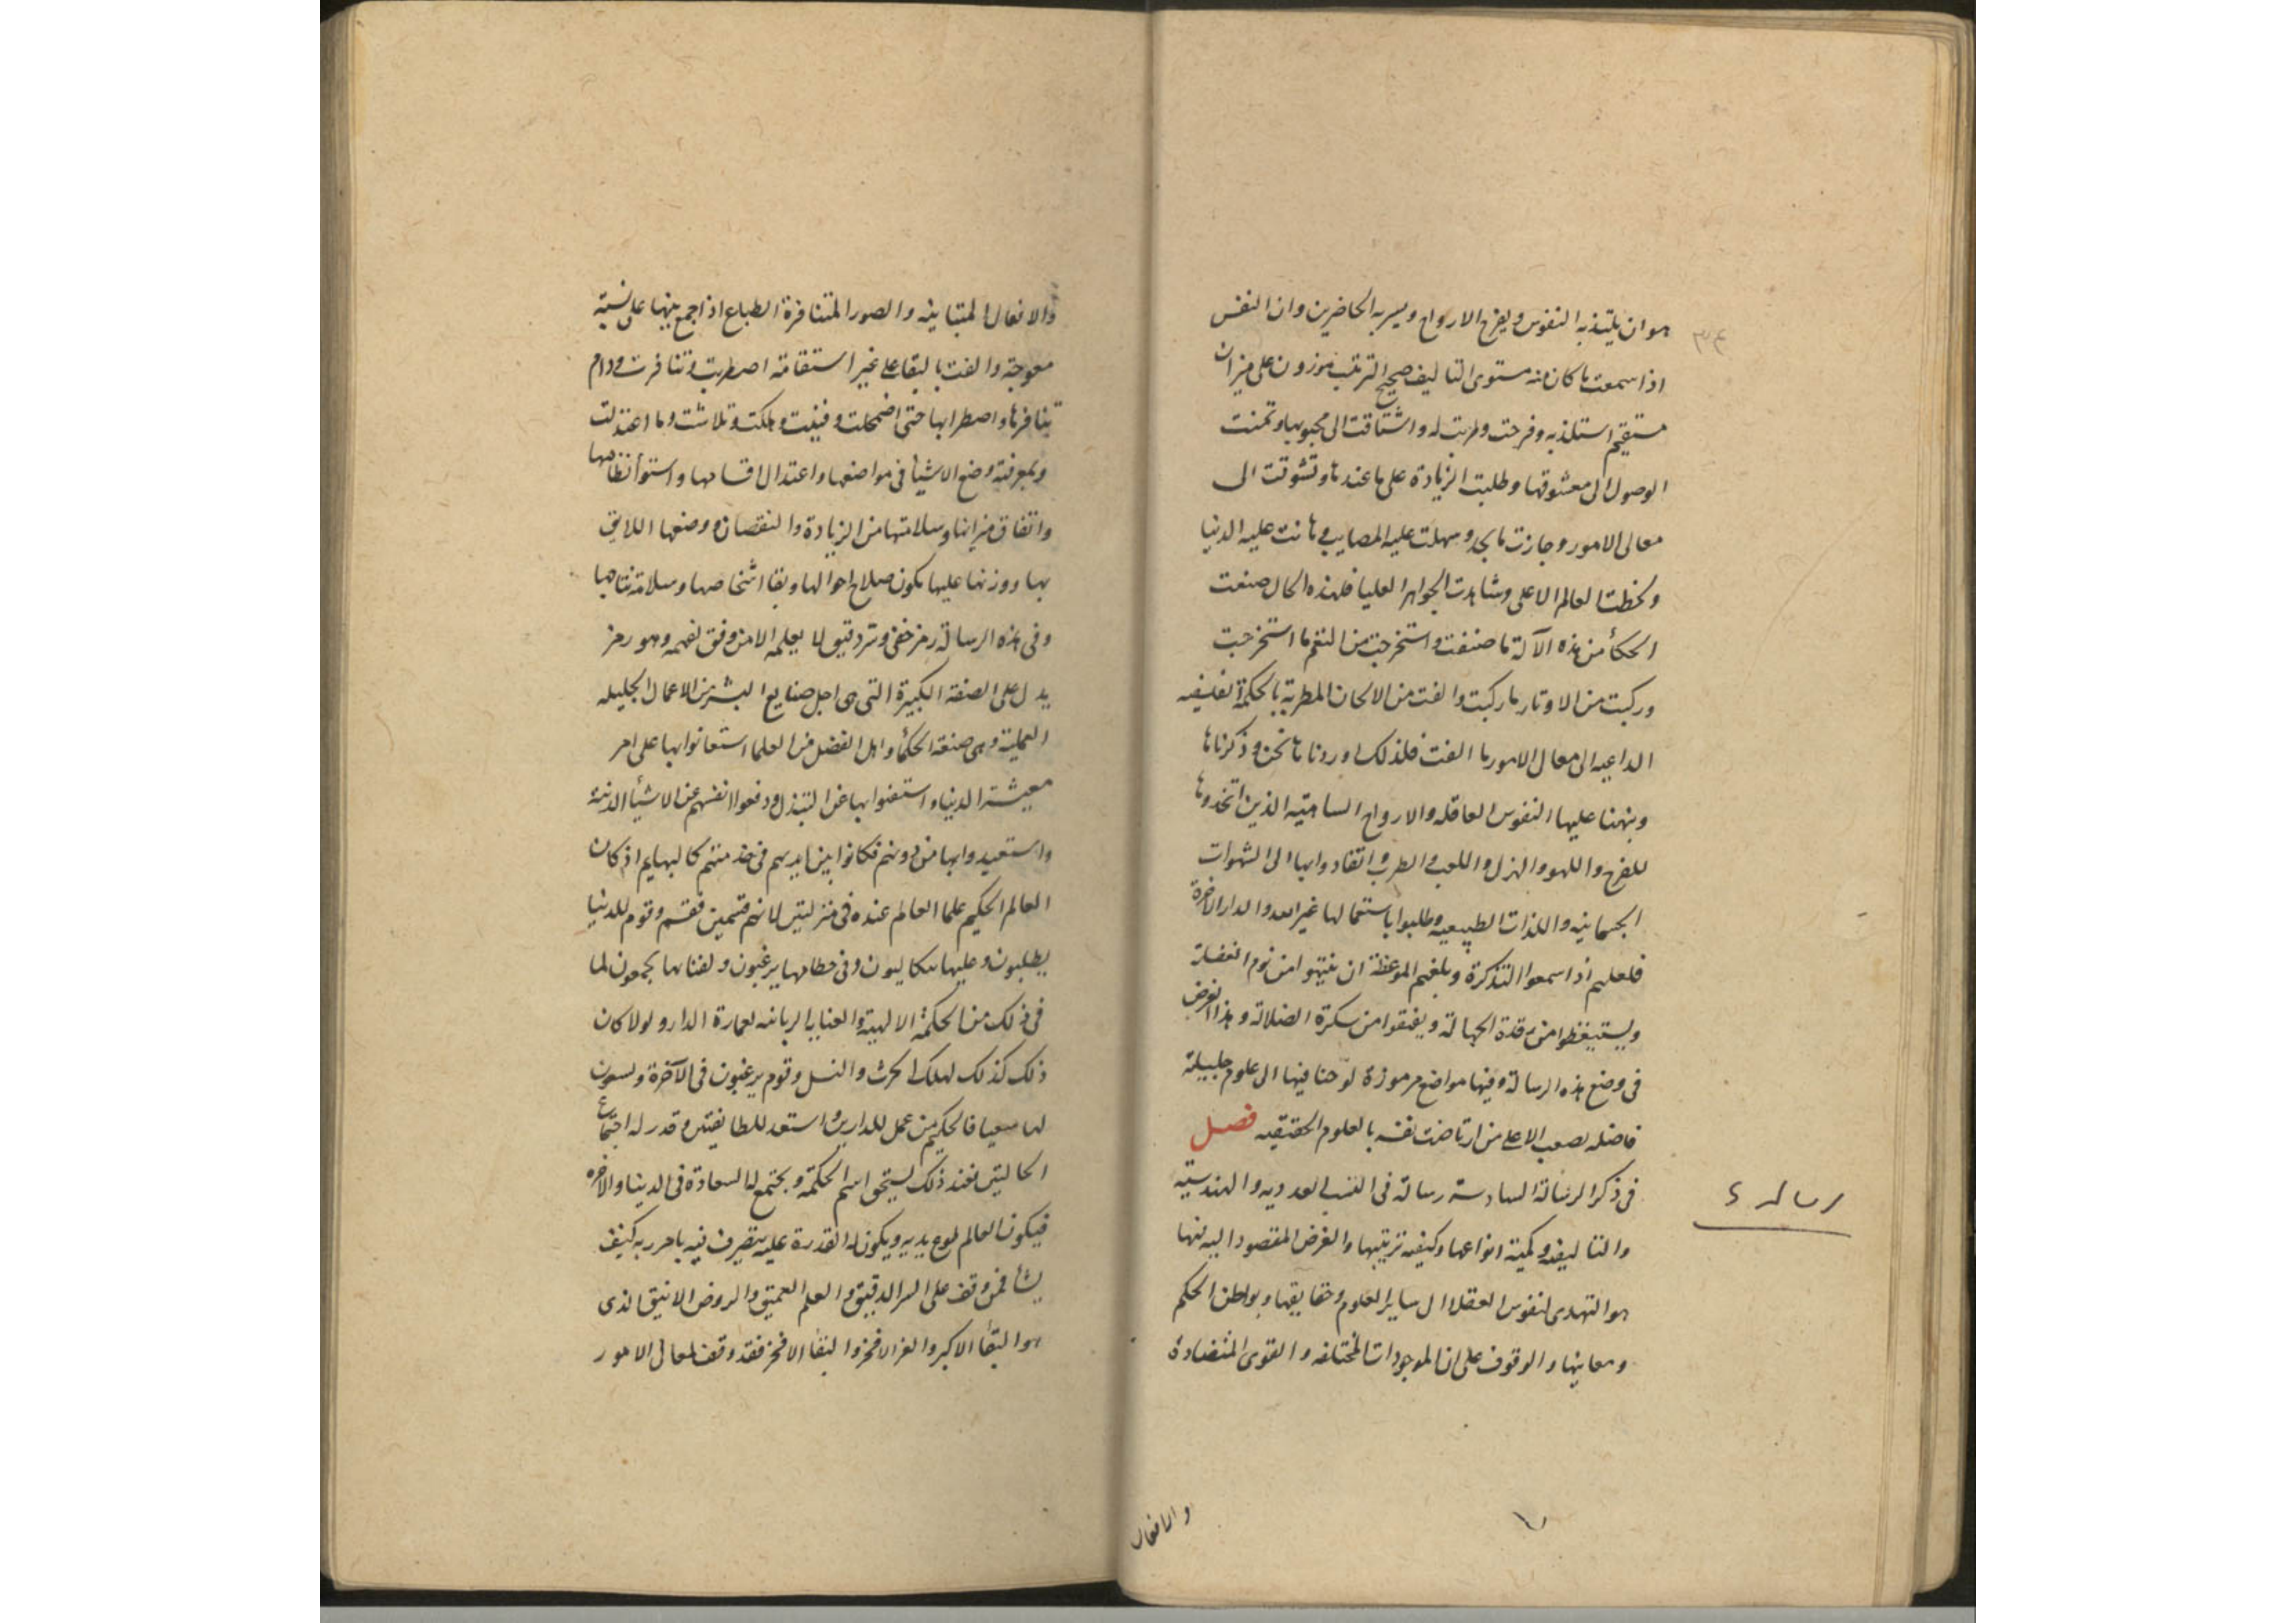 هو ان يلتذ به النفوس ويفرح الارواح ويسر به الحاضرين وان النفس
اذا سمعت ما كان منه مستوى التاليف صحيح الترتيب موزون على ميزان
مستقيم استلذ به وفرحت وطربت له واشتاقت الى محبوبها وتمنت
الوصول الى معشوقها وطلبت الزيادة على ما عندها وتشوقت الى
معالى الامور وجازت ما يجد وسهلت عليه المصايب وهانت عليه الدنيا
ولحظت العالم الاعلى وشاهدت الجواهر العليا فلهذه الحال صنعت
الحكمأ من هذه الآلة ما صنفت واستخرجت من النغم ما استخرجت
وركبت من الاوتار ما ركبت والفت من الالحان المطربة بالحكمة الفلسفيه
الداعيه الى معالى الامور ما الفت فلذلك اوردناها نحن وذكرناها
ونبهنا عليها النفوس العاقله والارواح الساهيه الذين اتخذوها
للفرح واللهو والهزل واللعب والطرب وانقادوا بها الى الشهوات
الجسمانيه واللذات الطبيعيه وطلبوا باستعمالها غير الله والدار الاخرة
فلعلهم اذا سمعوا التذكرة وبلغهم الموعظة ان ينتبهوا من نوم الغفلة
ويستيقظوا من رقدة الجهالة ويفيقوا من سكرة الضلالة وهذا الغرض
فى وضع هذه الرسالة وفيها مواضع مرموزة لوحنا فيها الى علوم جليلة
فاضله يصعب الا على من ارتاضت نفسه بالعلوم الحقيقيه فصل
فى ذكر الرسالة السادسة رسالة فى النسب العدديه والهندسيه
والتاليفيه وكمية انواعها وكيفيه ترتيبها والغرض المقصود اليه منها
هو التهدى لنفوس العقلاء الى ساير العلوم وحقايقها وبواطن الحكم
ومعانيها والوقوف على ان الموجودات المختلفه والقوى المتضادة
٣٤
رساله ٦
والافعال
والافعال المتباينه والصور المتنافرة الطباع اذا جمع بينها على نسبة
معوجة والفت بالبقا على غير استقامة اضطربت وتنافرت ودام
تنافرها واضطرابها حتى اضمحلت وفنيت وهلكت وتلاشت وما اعتدلت
وبمعرفة وضع الاشيأ فى مواضعها واعتدال اقسامها واستوأ نظامها
واتفاق ميزانها وسلامتها من الزيادة والنقصان ووضعها اللايق
بها ووزنها عليها يكون صلاح احوالها وبقا اشخاصها وسلامة نتاجها
وفى هذه الرسالة رمز خفى وسر دقيق لا يعلمه الا من وفق لفهمه وهو رمز
يدل على الصنعة الكبيرة التى هى اجل صنايع البشر من الاعمال الجليله
العملية وهى صنعة الحكمأ واهل الفضل من العلما استعانوا بها على امر
معيشة الدنيا واستغنوا بها عن التبذل ودفعوا انفسهم عن الاشيأ الدنية
واستعبدوا بها من دونهم فكانوا بين ايديهم فى خدمتهم كالبهايم اذ كان
العالم الحكيم علما العالم عنده فى منزلتين لانهم قسمين فقسم وقوم للدنيا
يطلبون وعليها يتكالبون وفى حطامها يرغبون ولفنايها يجمعون لما
فى ذلك من الحكمة الالهية والعناية الربانيه لعمارة الدار ولولا كان
ذلك كذلك لهلك الحرث والنسل وقوم يرغبون فى الآخرة ويسعون
لها سعيا فالحكيم من عمل للدارين واستعد للطايفتين وقدر له اجتماع
الحالتين فعند ذلك يستحق اسم الحكمة ويجتمع له السعادة فى الدنيا والاخره
فيكون العالم طوع يديه ويكون له القدرة عليه يتصرف فيه بامر ربه كيف
يشا فمن وقف على السر الدقيق والعلم العميق والروض الانيق الذى
هو البقأ الاكبر والعز الافخر والبقأ الافخر فقد وقف لمعالى الامور